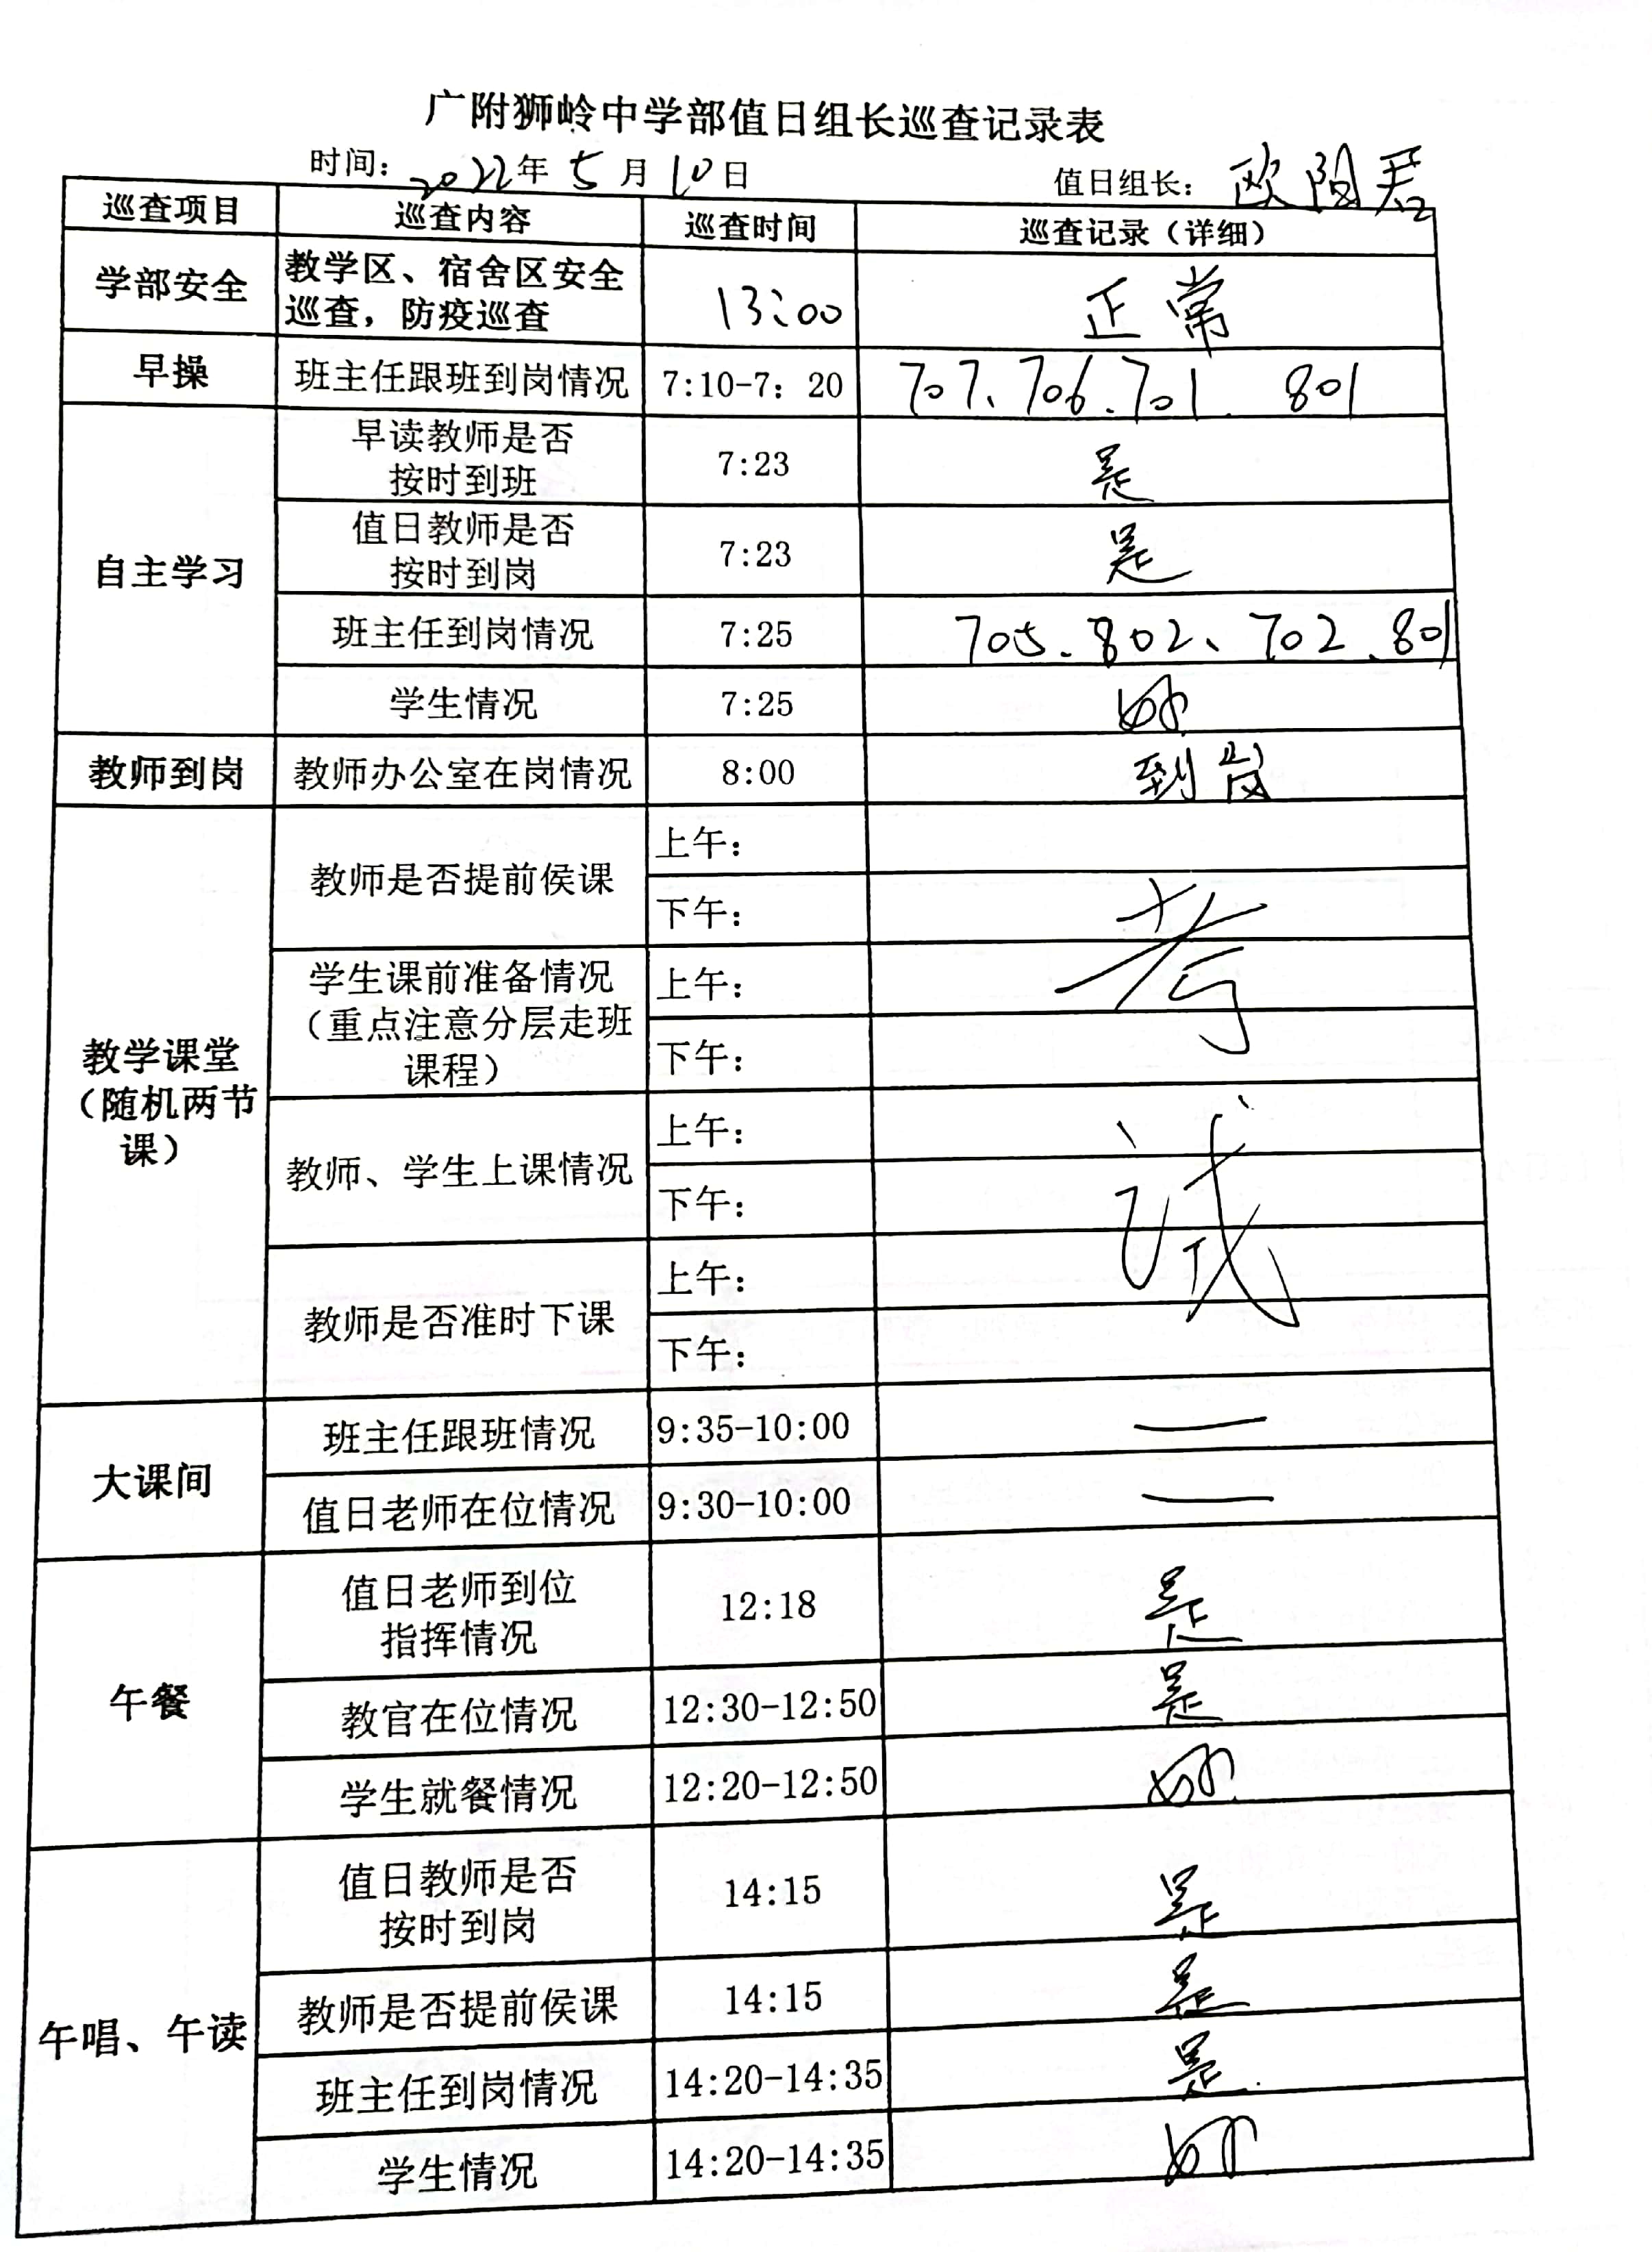 广附狮岭中学部值日组长巡查记录表
时间：2022年5月10日 值日组长：欧阳君
巡查项目 巡查内容 巡查时间 巡查记录（详细）
学部安全 教学区、宿舍区安全
巡查，防疫巡查 13:00 正常
早操 班主任跟班到岗情况 7:10-7：20 707、706.701. 801
自主学习
早读教师是否
按时到班 7:23 是
值日教师是否
按时到岗 7:23 是
班主任到岗情况 7:25 705.802、702.801
学生情况 7:25 好
教师到岗 教师办公室在岗情况 8:00 到岗
教学课堂
（随机两节
课）
教师是否提前侯课 上午：
下午：
学生课前准备情况
（重点注意分层走班
课程）
上午：
下午：
教师、学生上课情况 上午：
下午：
教师是否准时下课 上午：
下午：
考
试
大课间
班主任跟班情况 9:35-10:00 —
值日老师在位情况 9:30-10:00 —
午餐
值日老师到位
指挥情况 12:18 是
教官在位情况 12:30-12:50 是
学生就餐情况 12:20-12:50 好
午唱、午读
值日教师是否
按时到岗 14:15 是
教师是否提前侯课 14:15 是
班主任到岗情况 14:20-14:35 是
学生情况 14:20-14:35 好